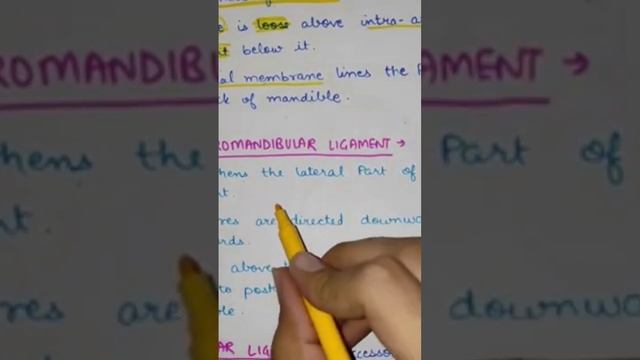 e is loose above intra-a
t below it.
al membrane lines the P
ck of mandible.
ROMANDIBULAR LIGAMENT →
hens the lateral Part of
nt.
res are directed downwa
rds.
above
to post
le.
AR LIG ccesso